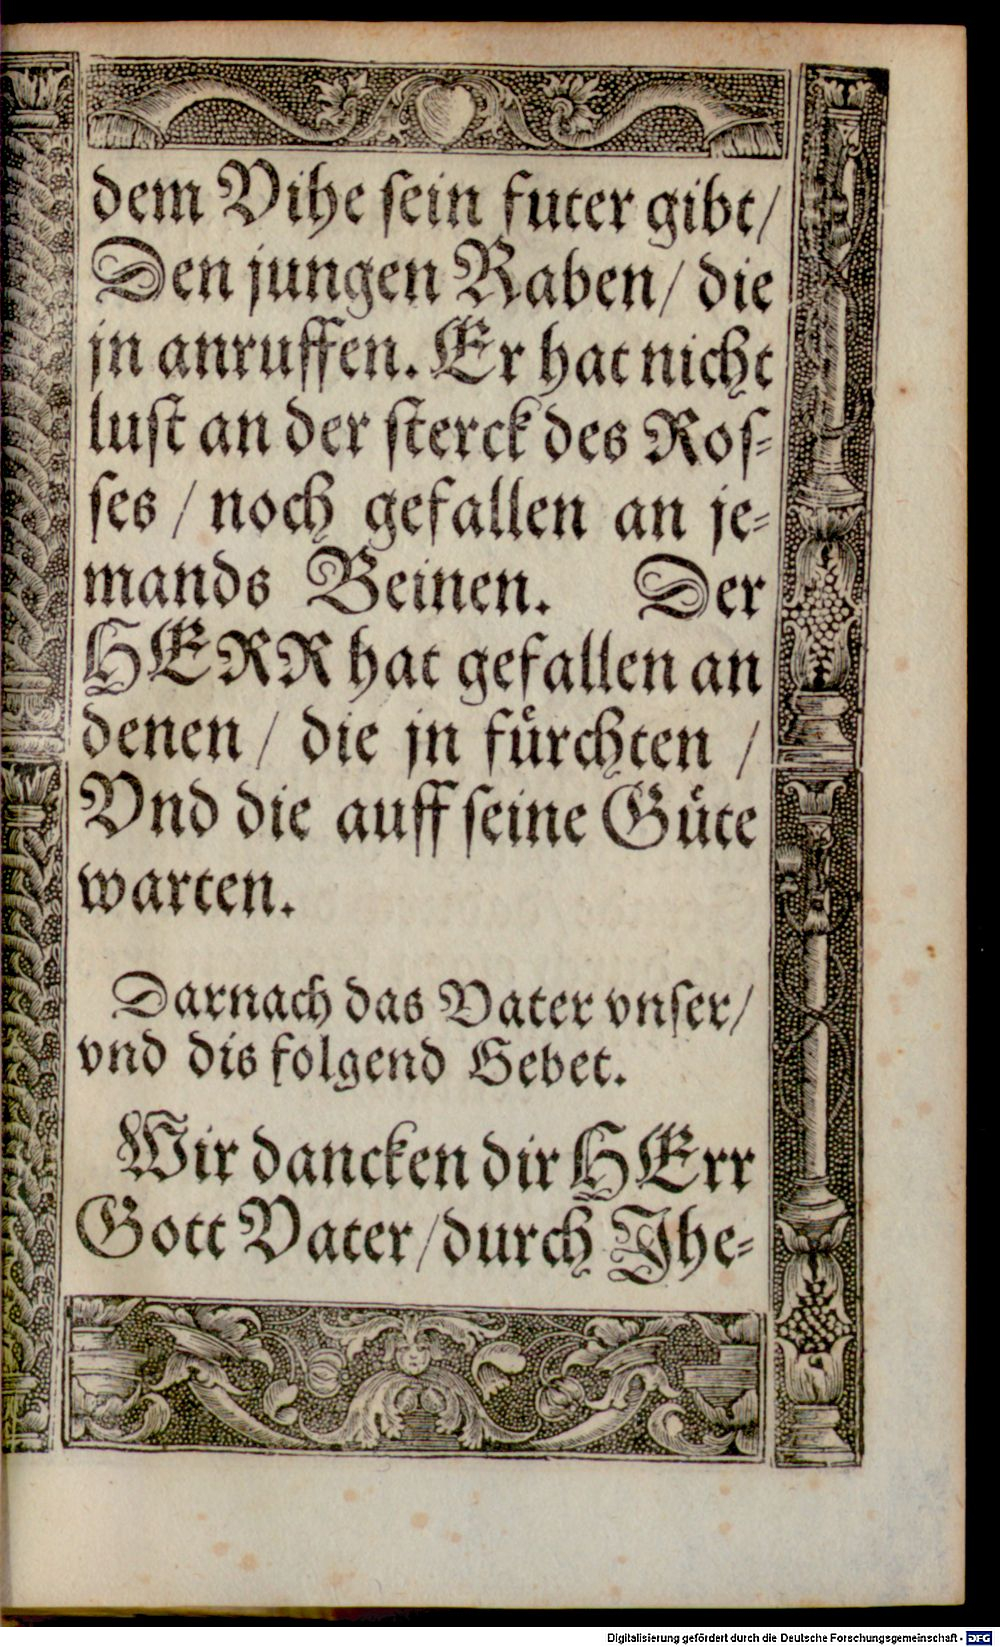 dem Vihe sein futer gibt/
Den jungen Raben/ die
jn anruffen. Er hat nicht
lust an der sterck des Ros-
ses / noch gefallen an je-
mands Beinen. Der
HERR hat gefallen an
denen / die jn fürchten /
Vnd die auff seine Güte
warten.
Darnach das Vater vnser/
vnd dis folgend Gebet.
Wir dancken dir HErr
Gott Vater/durch Jhe-
Digitalisierung gefördert durch die Deutsche Forschungsgemeinschaft - DFG